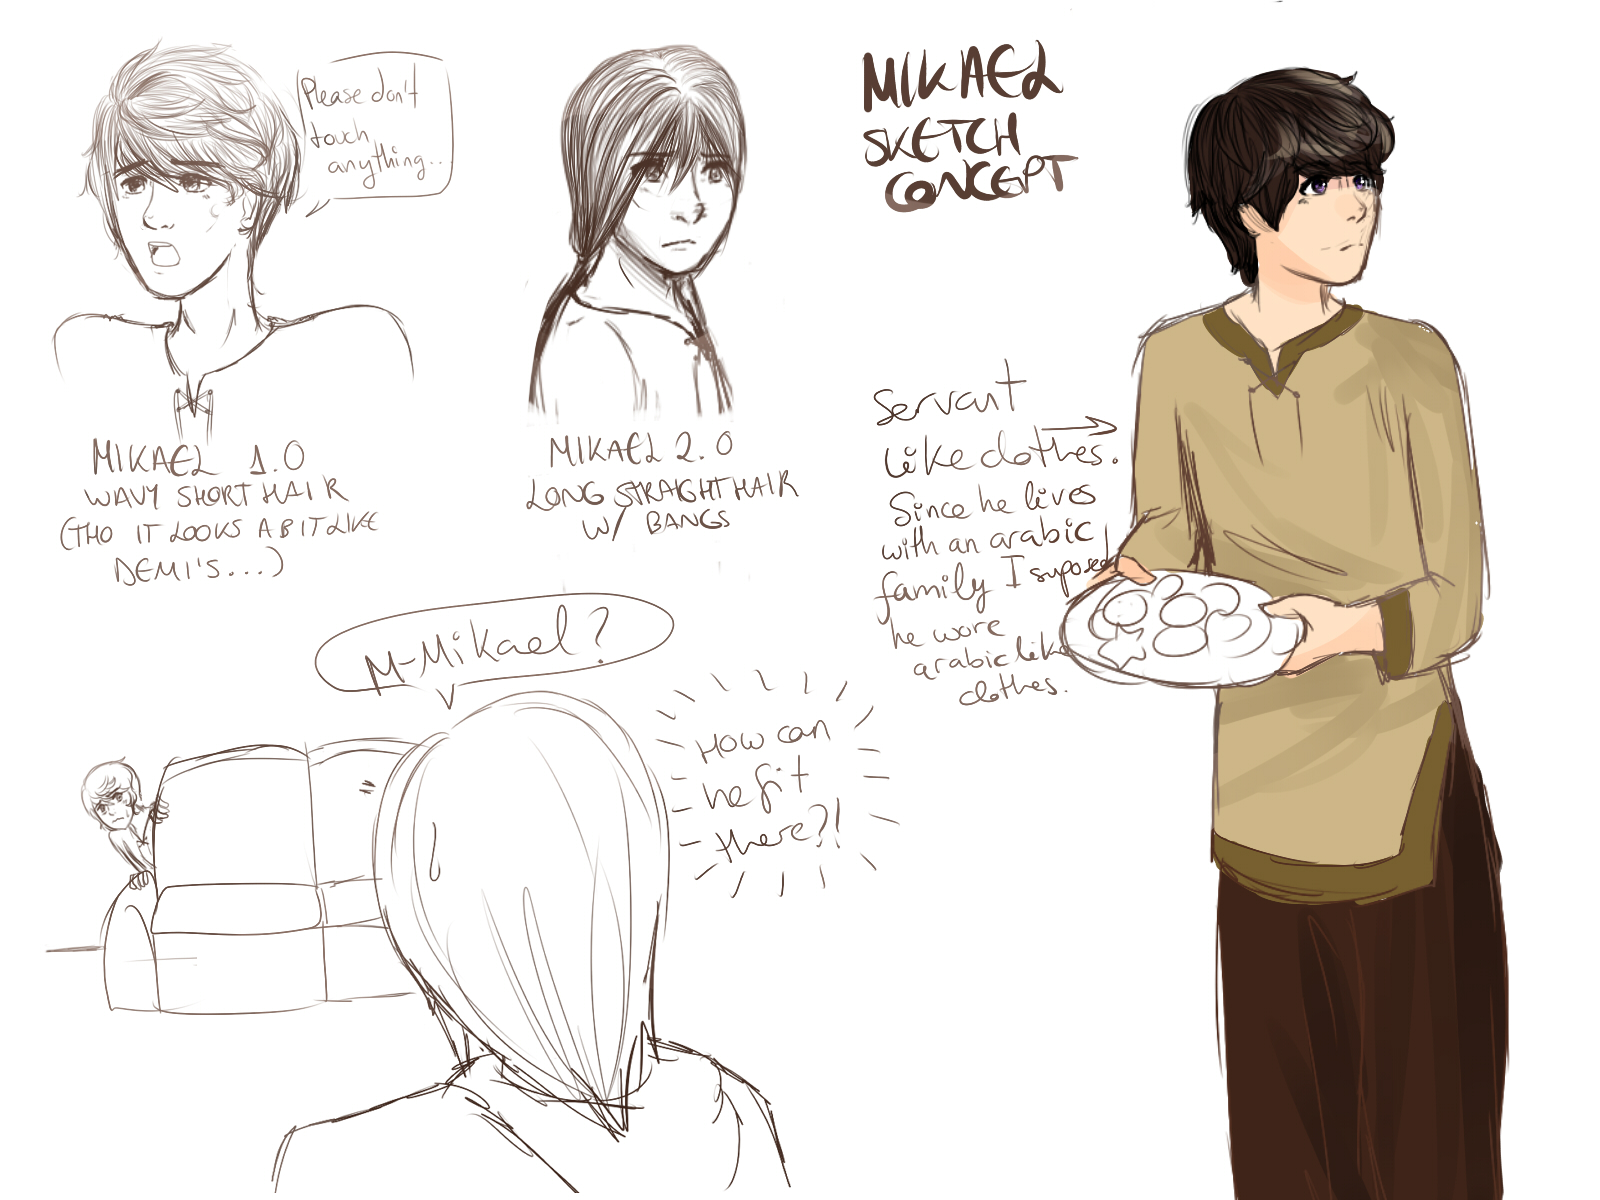 Please don't
touch
anything...
MIKAEL 1.0
WAVY SHORT HAIR
(THO IT LOOKS A BIT LIKE
DEMI'S...)
MIKAEL 2.0
LONG STRAIGHT HAIR
W/ BANGS
MIKAEL
SKETCH
CONCEPT
Servant
like clothes.
Since he lives
with an arabic
family I suposed
he wore
arabic like
clothes.
M-Mikael?
How can
he fit
there?!